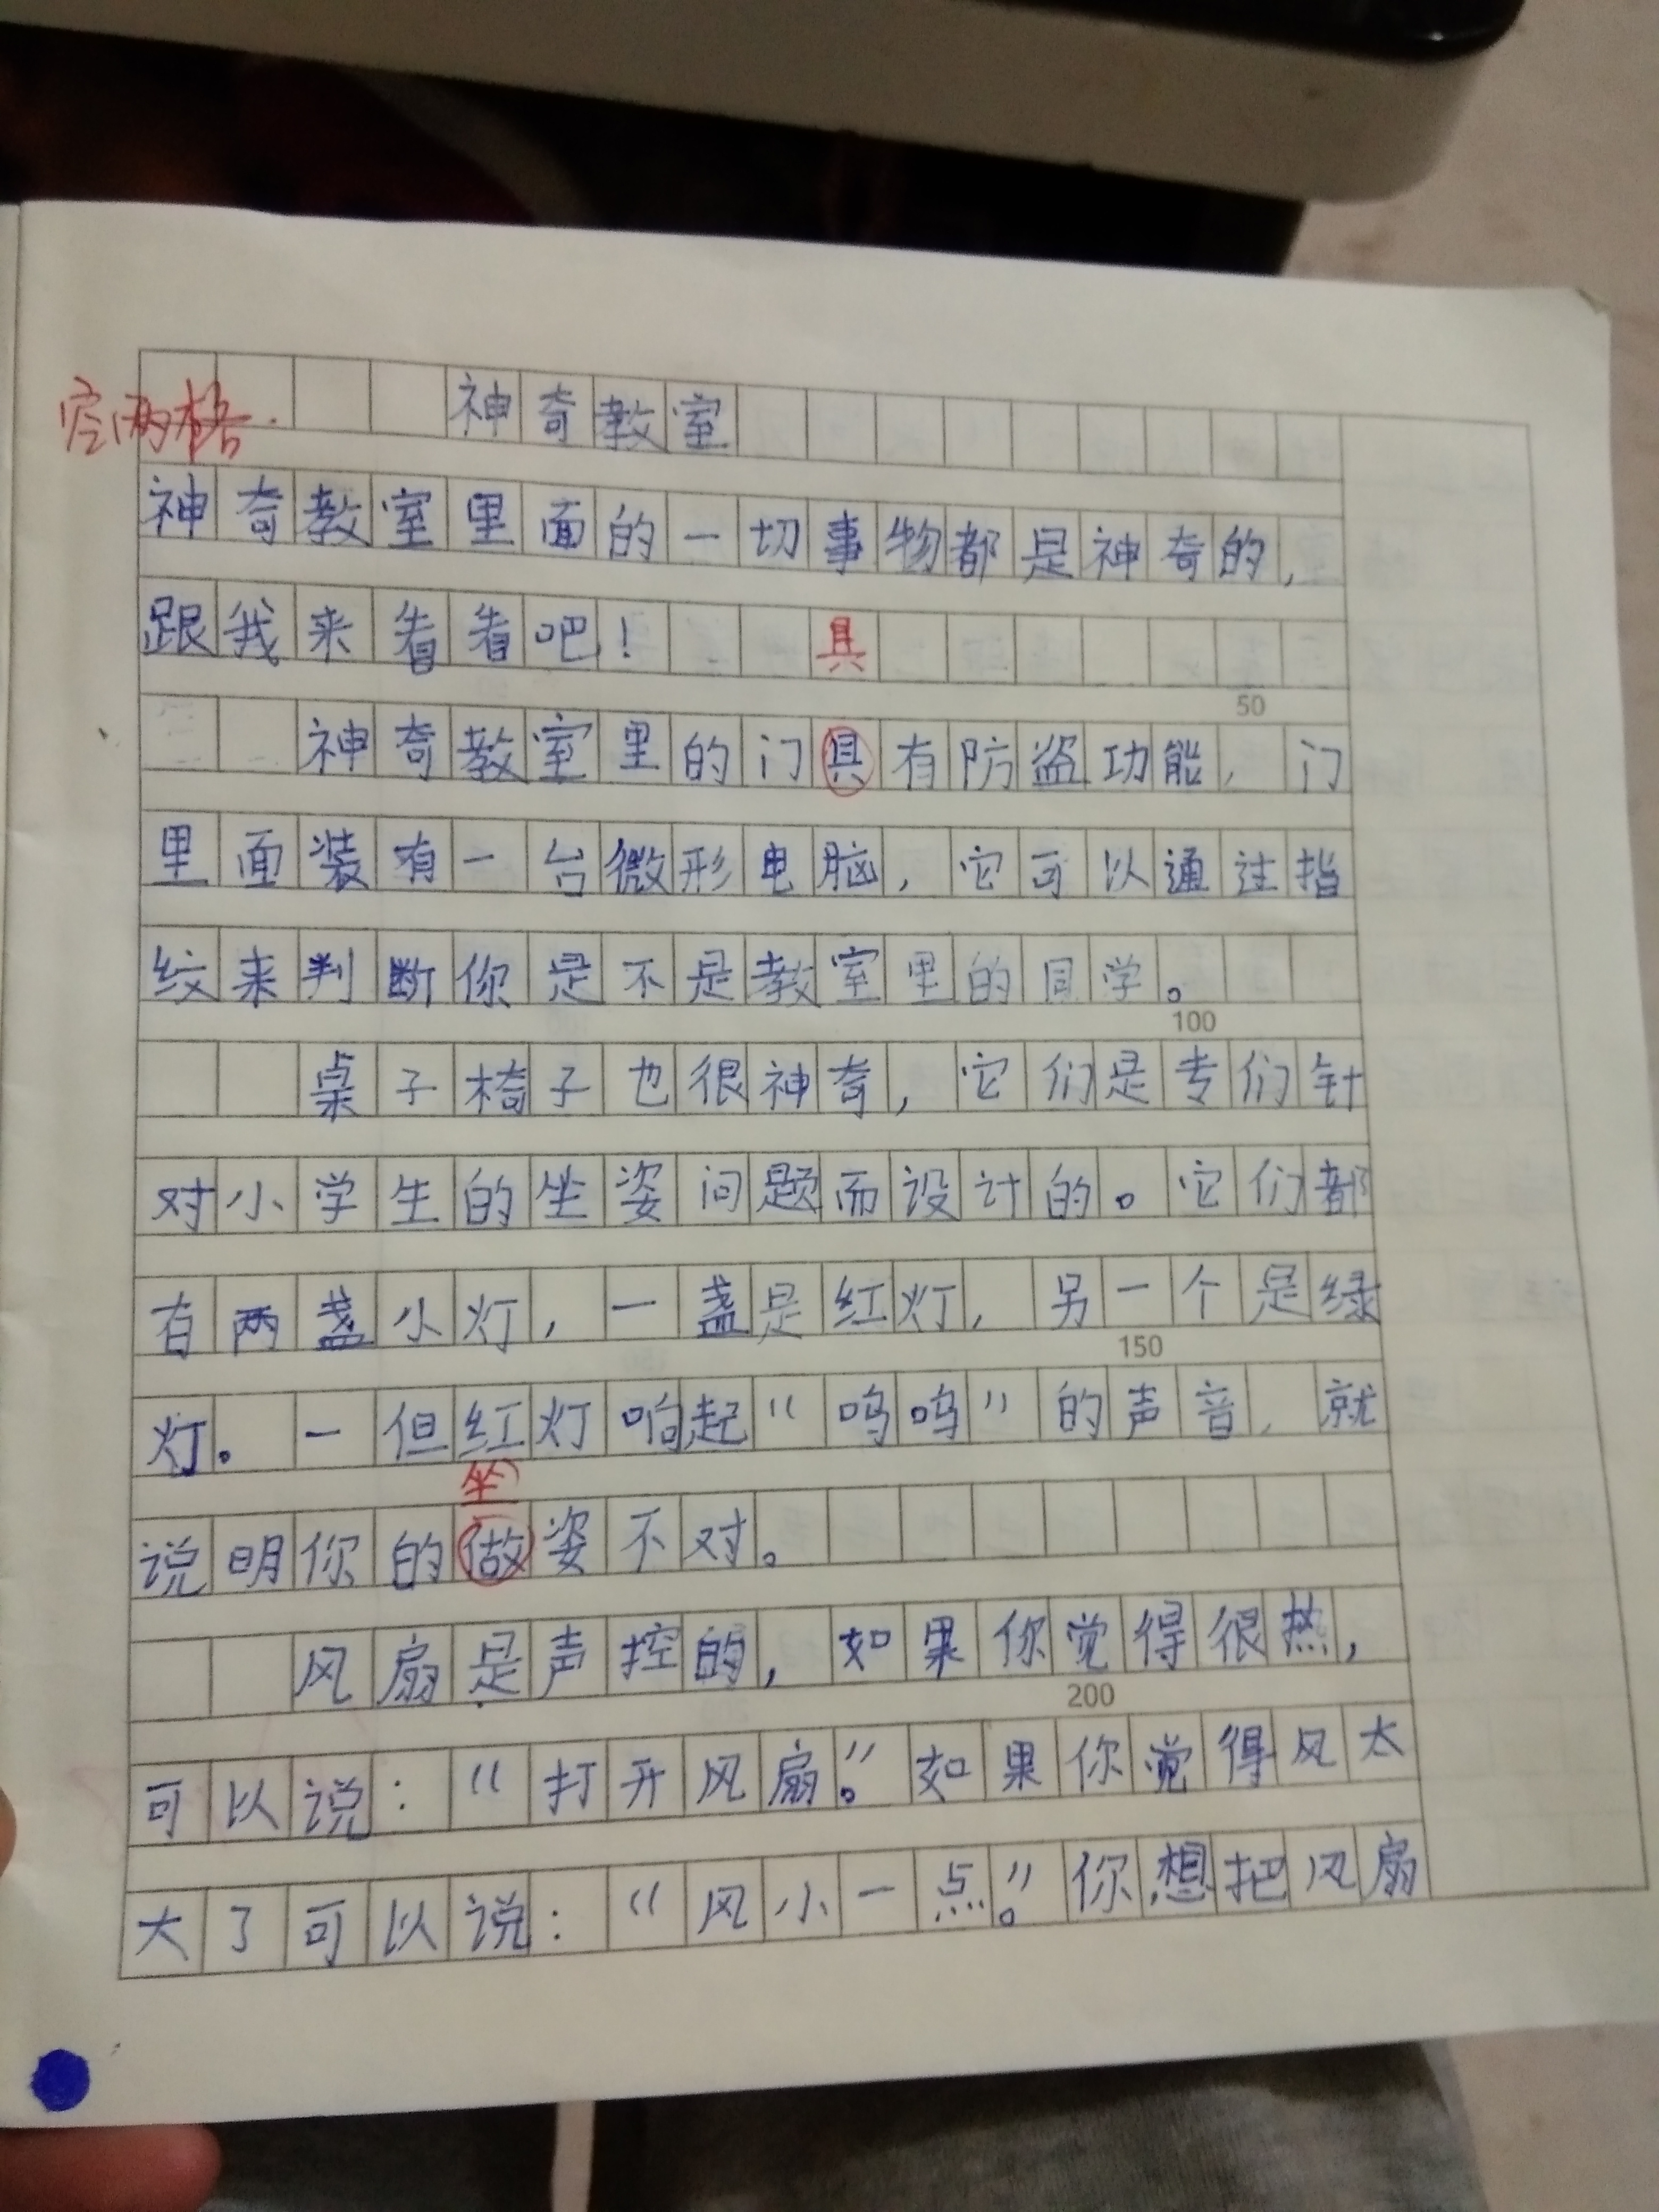 神奇教室
空两格.
神奇教室里面的一切事物都是神奇的，
跟我来看看吧！
具
50
神奇教室里的门具有防盗功能，门
里面装有一台微形电脑，它可以通过指
纹来判断你是不是教室里的同学。
100
桌子椅子也很神奇，它们是专们针
对小学生的坐姿问题而设计的。它们都
有两盏小灯，一盏是红灯，另一个是绿
150
灯。一但红灯响起“呜呜”的声音，就
坐
说明你的做姿不对。
风扇是声控的，如果你觉得很热，
200
可以说：“打开风扇。”如果你觉得风太
大了可以说：“风小一点。”你想把风扇